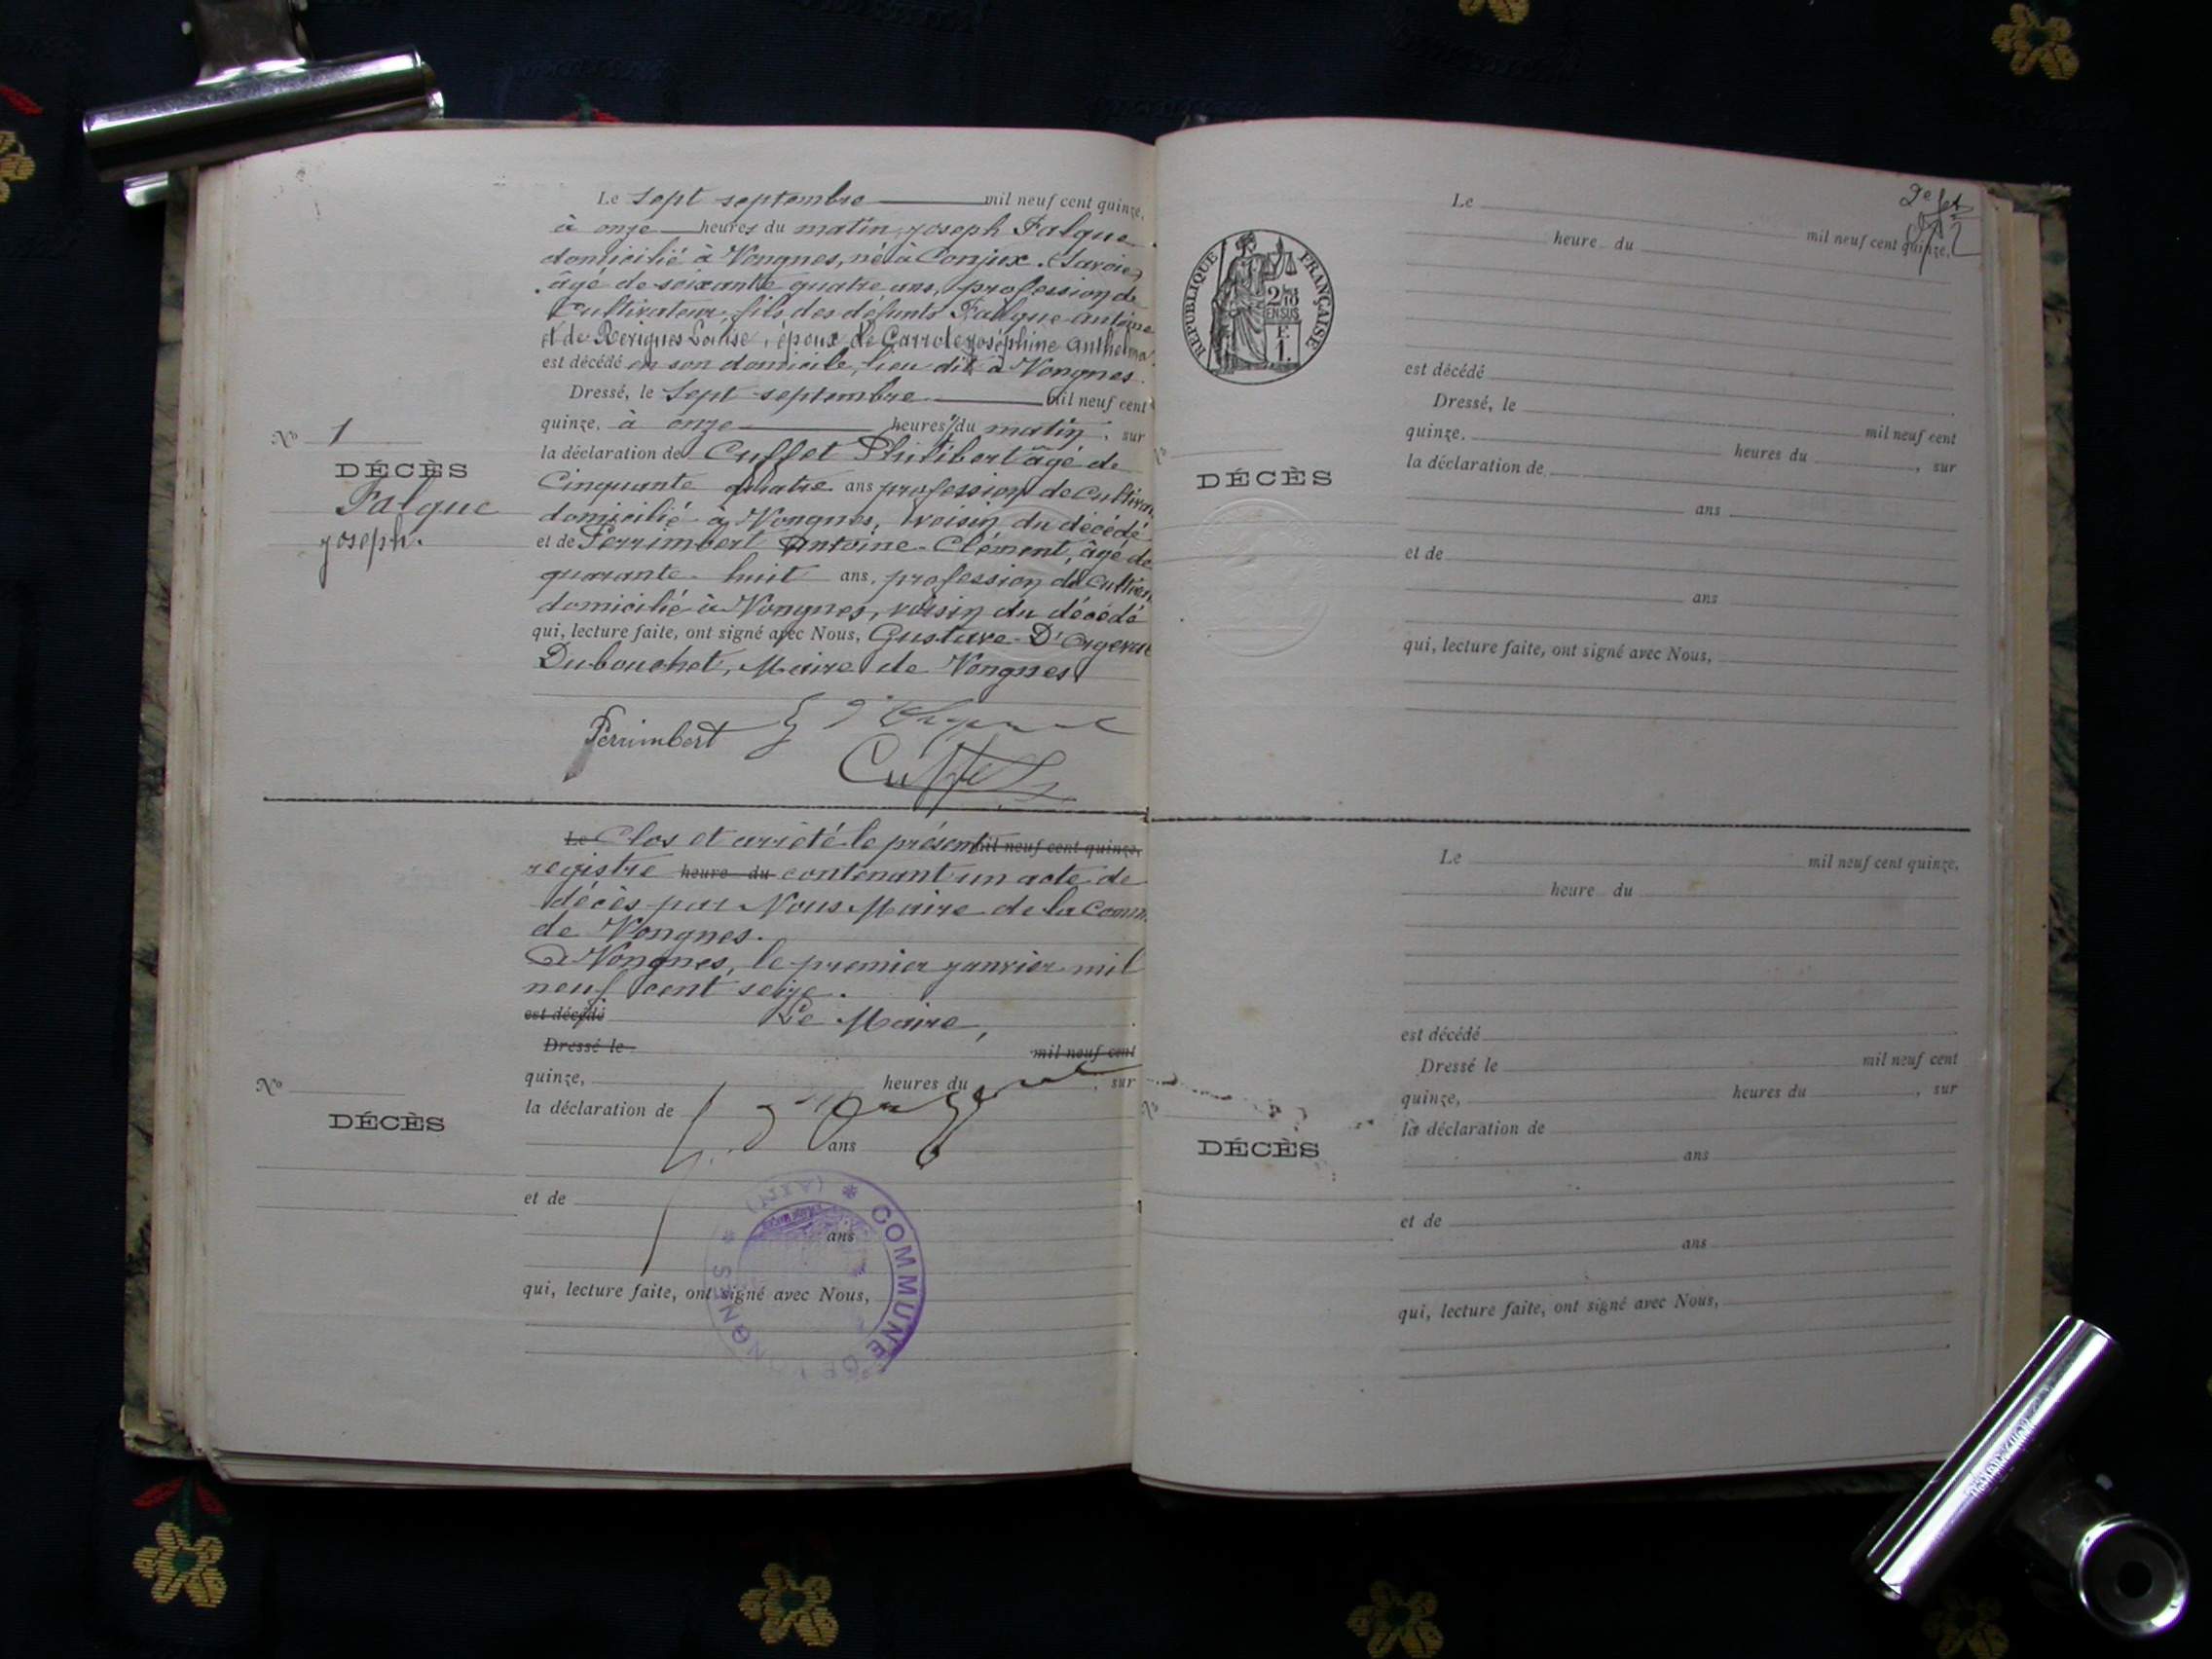 Le sept septembre mil neuf cent quinze,
à onze heures du matin, Joseph Falque
domicilié à Vongnes, né à Conjux (Savoie)
âgé de soixante quatre ans, profession de
Cultivateur, fils des défunts Falque Antoine
et de Louise, époux de Joséphine Anthelma
est décédé en son domicile, lieu dit à Vongnes.
Dressé, le sept septembre mil neuf cent
quinze, à onze heures du matin, sur
la déclaration de Cuffet Philibert âgé de
Cinquante quatre ans profession de Cultivat
domicilié à Vongnes, voisin du décédé
et de Perrimbert Antoine-Clément, âgé de
quarante-huit ans, profession de Cultivat
domicilié à Vongnes, voisin du décédé
qui, lecture faite, ont signé avec Nous, Gustave D'Orgeval
Dubouchet, Maire de Vongnes
Perrimbert
Cuffet
No 1
DÉCÈS
Falque
Joseph.
Le Clos et arrêté le présent mil neuf cent quinze,
registre heure du contenant un acte de
décès par Nous Maire de la Comm.
de Vongnes.
A Vongnes, le premier janvier mil
neuf cent seize.
est décédé Le Maire,
Dressé le mil neuf cent
quinze, heures du , sur
la déclaration de
ans
et de
ans
qui, lecture faite, ont signé avec Nous,
No
DÉCÈS
COMMUNE DE VONGNES
(AIN)
Le mil neuf cent quinze,
heure du
est décédé
Dressé, le mil neuf cent
quinze, heures du , sur
la déclaration de
ans
et de
ans
qui, lecture faite, ont signé avec Nous,
RÉPUBLIQUE FRANÇAISE
EN SUS
No
DÉCÈS
Le mil neuf cent quinze,
heure du
est décédé
Dressé le mil neuf cent
quinze, heures du , sur
la déclaration de
ans
et de
ans
qui, lecture faite, ont signé avec Nous,
No
DÉCÈS